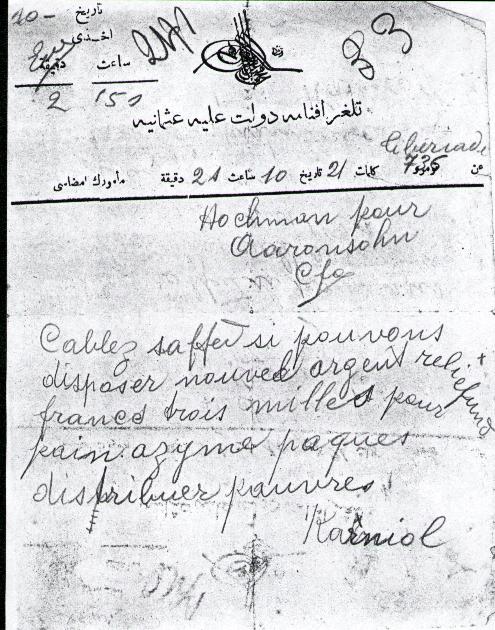 تاريخ
10-
اخذى
ساعت دقيقه
2 150
تلغرافنامه دولت عليه عثمانيه
Tiberiade
عن نومرو 736 كلمات 21 تاريخ 10 ساعت 21 دقيقه مأمورك امضاسى
Hochman pour
Aaronsohn
Cfa
Cablez saffed si pouvons
disposer nouvel argent relief fund +
francs trois milles pour
pain azyme paques
distribuer pauvres
Karniol